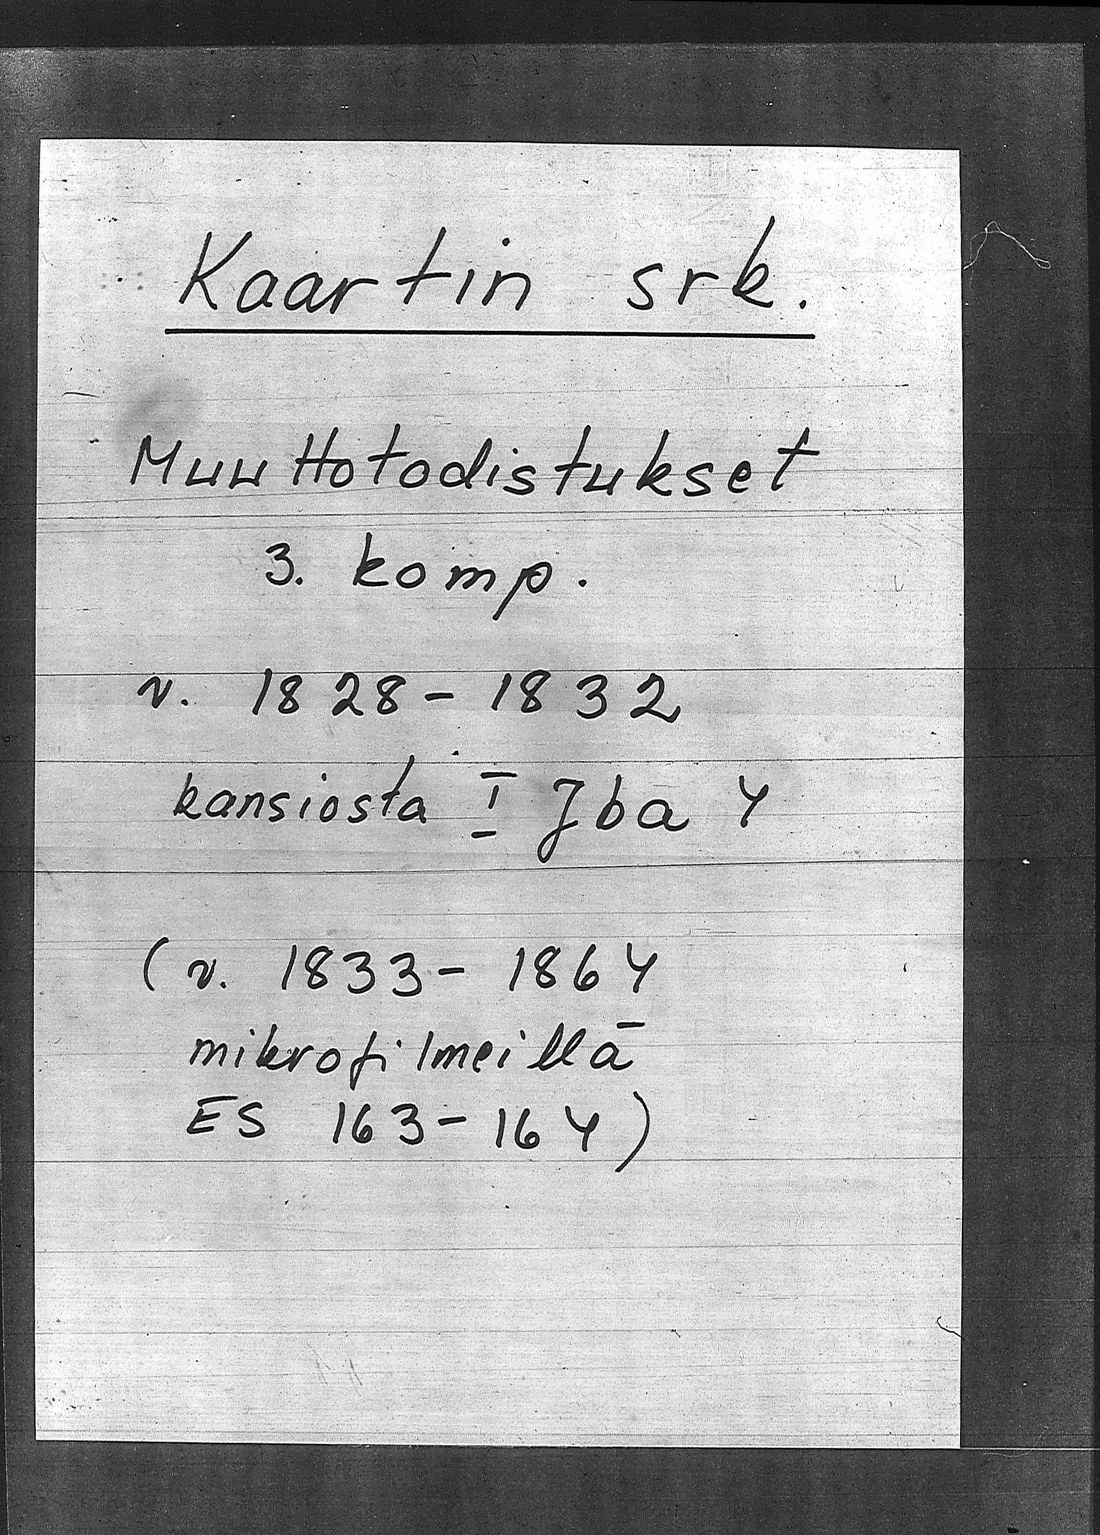 Kaartin srk.
Muuttotodistukset
3. komp.
v. 1828-1832
kansiosta I Jba 4
(v. 1833-1864
mikrofilmeillä
ES 163-164)